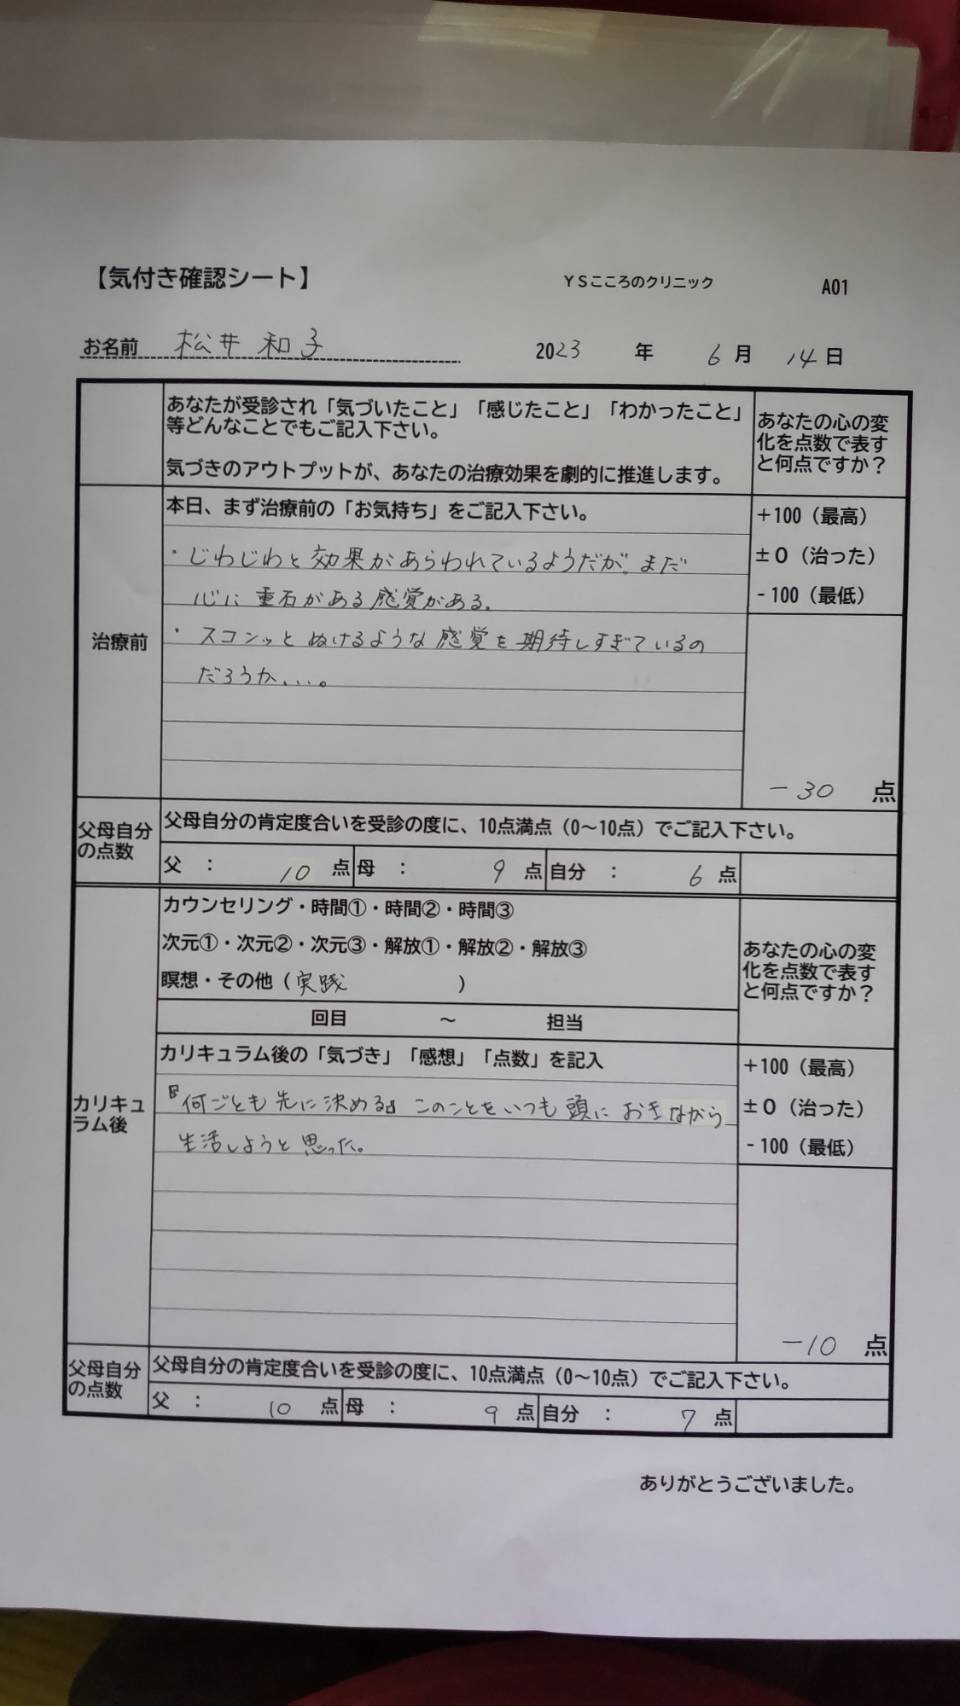 【気付き確認シート】 YSこころのクリニック A01
お名前 松井 和子 2023 年 6 月 14 日
あなたが受診され「気づいたこと」「感じたこと」「わかったこと」
等どんなことでもご記入下さい。
気づきのアウトプットが、あなたの治療効果を劇的に推進します。
あなたの心の変
化を点数で表す
と何点ですか？
治療前
本日、まず治療前の「お気持ち」をご記入下さい。
・じわじわと効果があらわれているようだが、まだ
心に重石がある感覚がある。
・スコンッとぬけるような感覚を期待しすぎているの
だろうか、、、。
+100（最高）
±0（治った）
-100（最低）
-30 点
父母自分
の点数
父母自分の肯定度合いを受診の度に、10点満点（0～10点）でご記入下さい。
父 ： 10 点 母 ： 9 点 自分 ： 6 点
カリキュ
ラム後
カウンセリング・時間①・時間②・時間③
次元①・次元②・次元③・解放①・解放②・解放③
瞑想・その他（実践 ）
回目 ～ 担当
あなたの心の変
化を点数で表す
と何点ですか？
カリキュラム後の「気づき」「感想」「点数」を記入
『何ごとも先に決める』このことをいつも頭におきながら
生活しようと思った。
+100（最高）
±0（治った）
-100（最低）
-10 点
父母自分
の点数
父母自分の肯定度合いを受診の度に、10点満点（0～10点）でご記入下さい。
父 ： 10 点 母 ： 9 点 自分 ： 7 点
ありがとうございました。